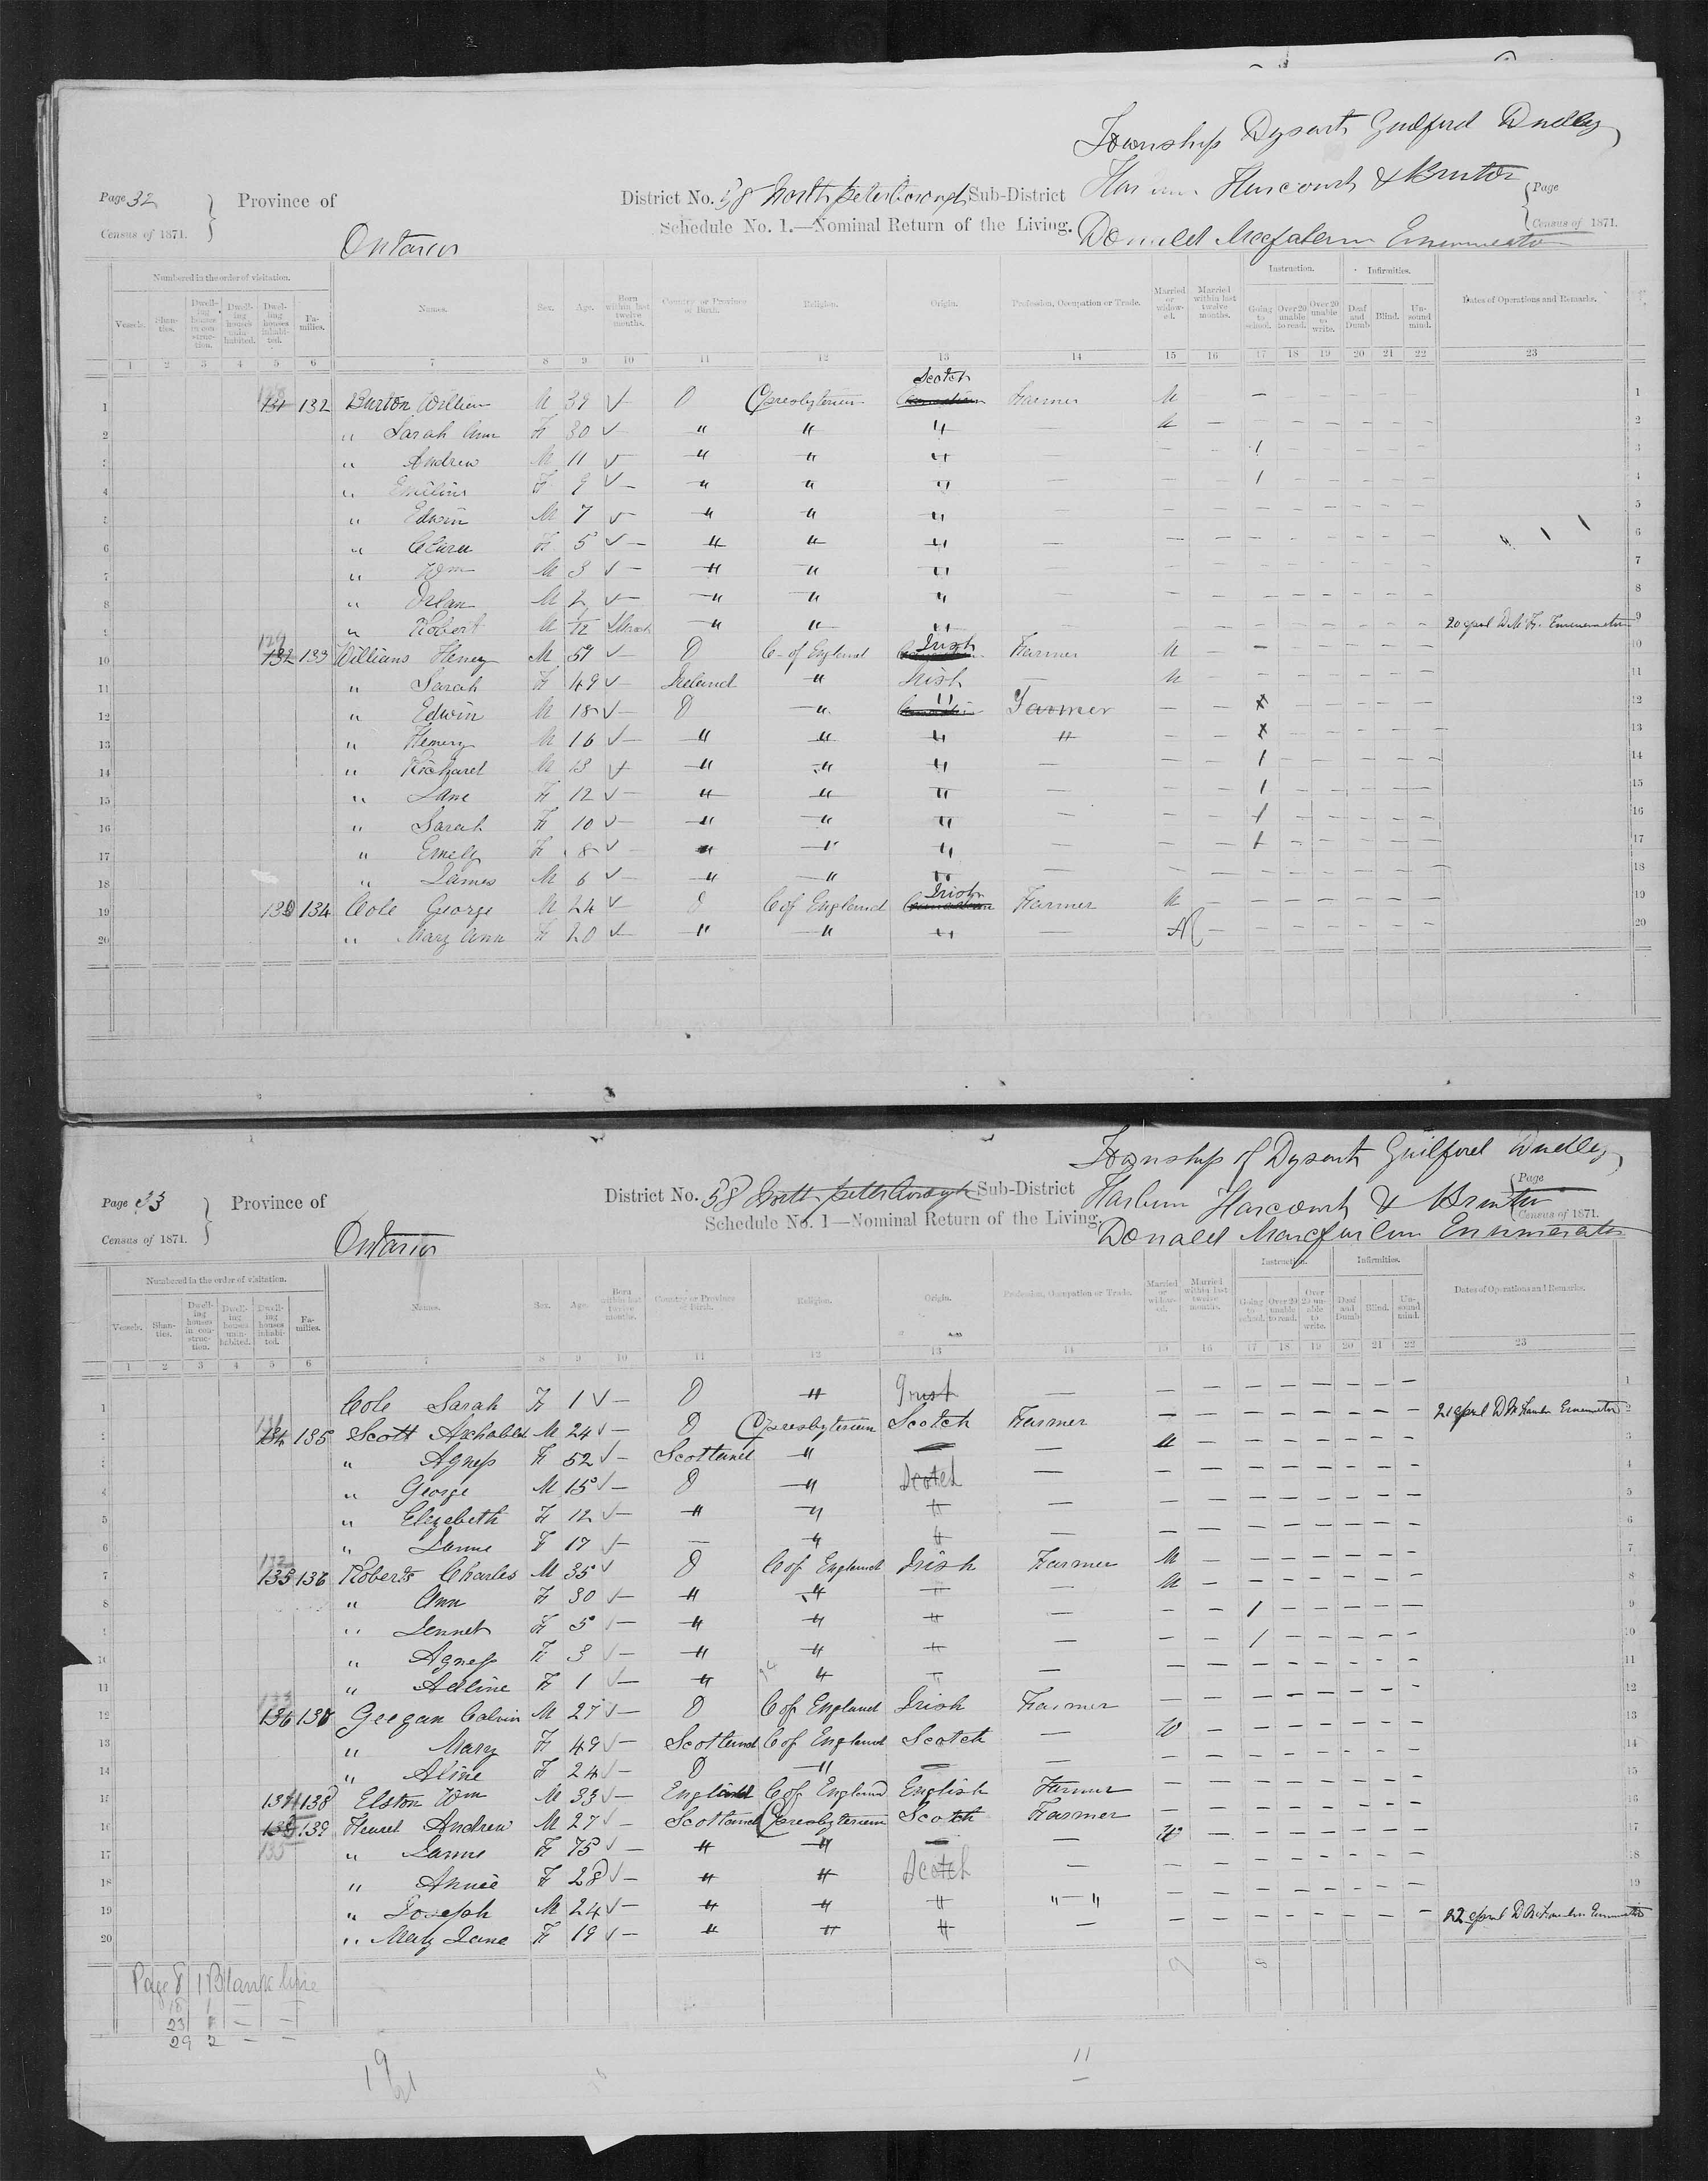 Township Dysart Guilford Dudley
Page 32 Province of District No. 58 North Peterborough Sub-District Harcourt & Bruton Page
Census of 1871. Ontario Schedule No. 1.—Nominal Return of the Living. Donald Enumerator Census of 1871.
Numbered in the order of visitation. Instruction. Infirmities.
Vessels. Shanties. Dwelling houses in construction. Dwelling houses uninhabited. Dwelling houses inhabited. Families. Names. Sex. Age. Born within last twelve months. Country or Province of Birth. Religion. Origin. Profession, Occupation or Trade. Married or widowed. Married within last twelve months. Going to school. Over 20 unable to read. Over 20 unable to write. Deaf and Dumb Blind. Unsound mind. Dates of Operations and Remarks.
1 2 3 4 5 6 7 8 9 10 11 12 13 14 15 16 17 18 19 20 21 22 23
Scotch
1 131 132 Burton William M 39 ✓ O Presbyterian Farmer M — 1
2 " Sarah Ann F 30 ✓ — " " " — M — — — — — — — 2
3 " Andrew M 11 ✓ — " " " — — 1 — — — — — 3
4 " F 9 ✓ — " " " — — — 1 — — — — — 4
5 " Edwin M 7 ✓ — " " " — — — — — — — — — 5
6 " Clara F 5 ✓ — " " " — — — — — — — — — 6
7 " Wm M 3 ✓ — " " " — — — — — — — — — 7
8 " Orlan M 2 ✓ — " " " — — — — — — — — — 8
9 " Robert M 1/12 March " " " — — — — — — — — — 20 April Enumerator 9
129
10 132 133 Williams Henry M 59 ✓ — O C. of England Irish Farmer M — — — — — — — 10
11 " Sarah F 49 ✓ — Ireland " Irish — M — — — — — — — 11
12 " Edwin M 18 ✓ — O " " Farmer — — x — — — — — 12
13 " Henery M 16 ✓ — " " " " — — x — — — — — 13
14 " Richard M 13 ✓ " " " — — — 1 — — — — — 14
15 " Jane F 12 ✓ — " " " — — — 1 — — — — — 15
16 " Sarah F 10 ✓ — " " " — — — 1 — — — — — 16
17 " Emely F 8 ✓ — " " " — — — 1 — — — — — 17
18 " James M 6 ✓ — " " " — — — — — — — — — 18
19 130 134 Cole George M 24 ✓ — O C of England Irish Farmer M — — — — — — — 19
20 " Mary Ann F 20 ✓ — " " " — M — — — — — — — 20
Township of Dysart Guilford Dudley
Page 33 Province of District No. 58 North Peterborough Sub-District Harburn Harcourt & Bruton Page
Census of 1871. Ontario Schedule No. 1—Nominal Return of the Living. Donald Enumerator Census of 1871.
Numbered in the order of visitation. Instruction. Infirmities.
Vessels. Shanties. Dwelling houses in construction. Dwelling houses uninhabited. Dwelling houses inhabited. Families. Names. Sex. Age. Born within last twelve months. Country or Province of Birth. Religion. Origin. Profession, Occupation or Trade. Married or widowed. Married within last twelve months. Going to school. Over 20 unable to read. Over 20 unable to write. Deaf and Dumb Blind. Unsound mind. Dates of Operations and Remarks.
1 2 3 4 5 6 7 8 9 10 11 12 13 14 15 16 17 18 19 20 21 22 23
1 Cole Sarah F 1 ✓ — O " Irish — — — — — — — — — 1
131
2 134 135 Scott M 24 ✓ — O Presbyterian Scotch Farmer — — — — — — — — 21 April Enumerator 2
3 " Agness F 52 ✓ — Scotland " — — — — — — — — — 3
4 " George M 15 ✓ — O " Scotch — — — — — — — — — 4
5 " Elizabeth F 12 ✓ — " " " — — — — — — — — 5
6 " F 17 ✓ — — " " — — — — — — — — — 6
132
7 135 136 Roberts Charles M 35 ✓ O C of England Irish Farmer M — — — — — — — 7
8 " Ann F 30 ✓ — " " " — M — — — — — — — 8
9 " Jennet F 5 ✓ — " " " — — — 1 — — — — — 9
10 " Agness F 3 ✓ — " " " — — — 1 — — — — — 10
11 " Adline F 1 ✓ — " " " — — — — — — — — — 11
133
12 136 137 Geegan Calvin M 27 ✓ — O C of England Irish Farmer — — — — — — — — 12
13 " Mary F 49 ✓ — Scotland C of England Scotch — W — — — — — — — 13
14 " Aline F 24 ✓ — O " — — — — — — — — — — 14
15 134 138 Elston Wm M 33 ✓ — England C of England English Farmer — — — — — — — — 15
16 139 Andrew M 27 ✓ — Scotland Presbyterian Scotch Farmer — — — — — — — — 16
17 135 " F 75 ✓ — " " — — W — — — — — — — 17
18 " Annie F 28 ✓ — " " Scotch — — — — — — — — — 18
19 " Joseph M 24 ✓ — " " " " — " — — — — — — — — 19
20 " Mary Jane F 19 ✓ — " " " — — — — — — — — — 22 April Enumerator
Page 8 1 Blank line
18 1 — —
23 1 — —
29 2 — —
19
21
11